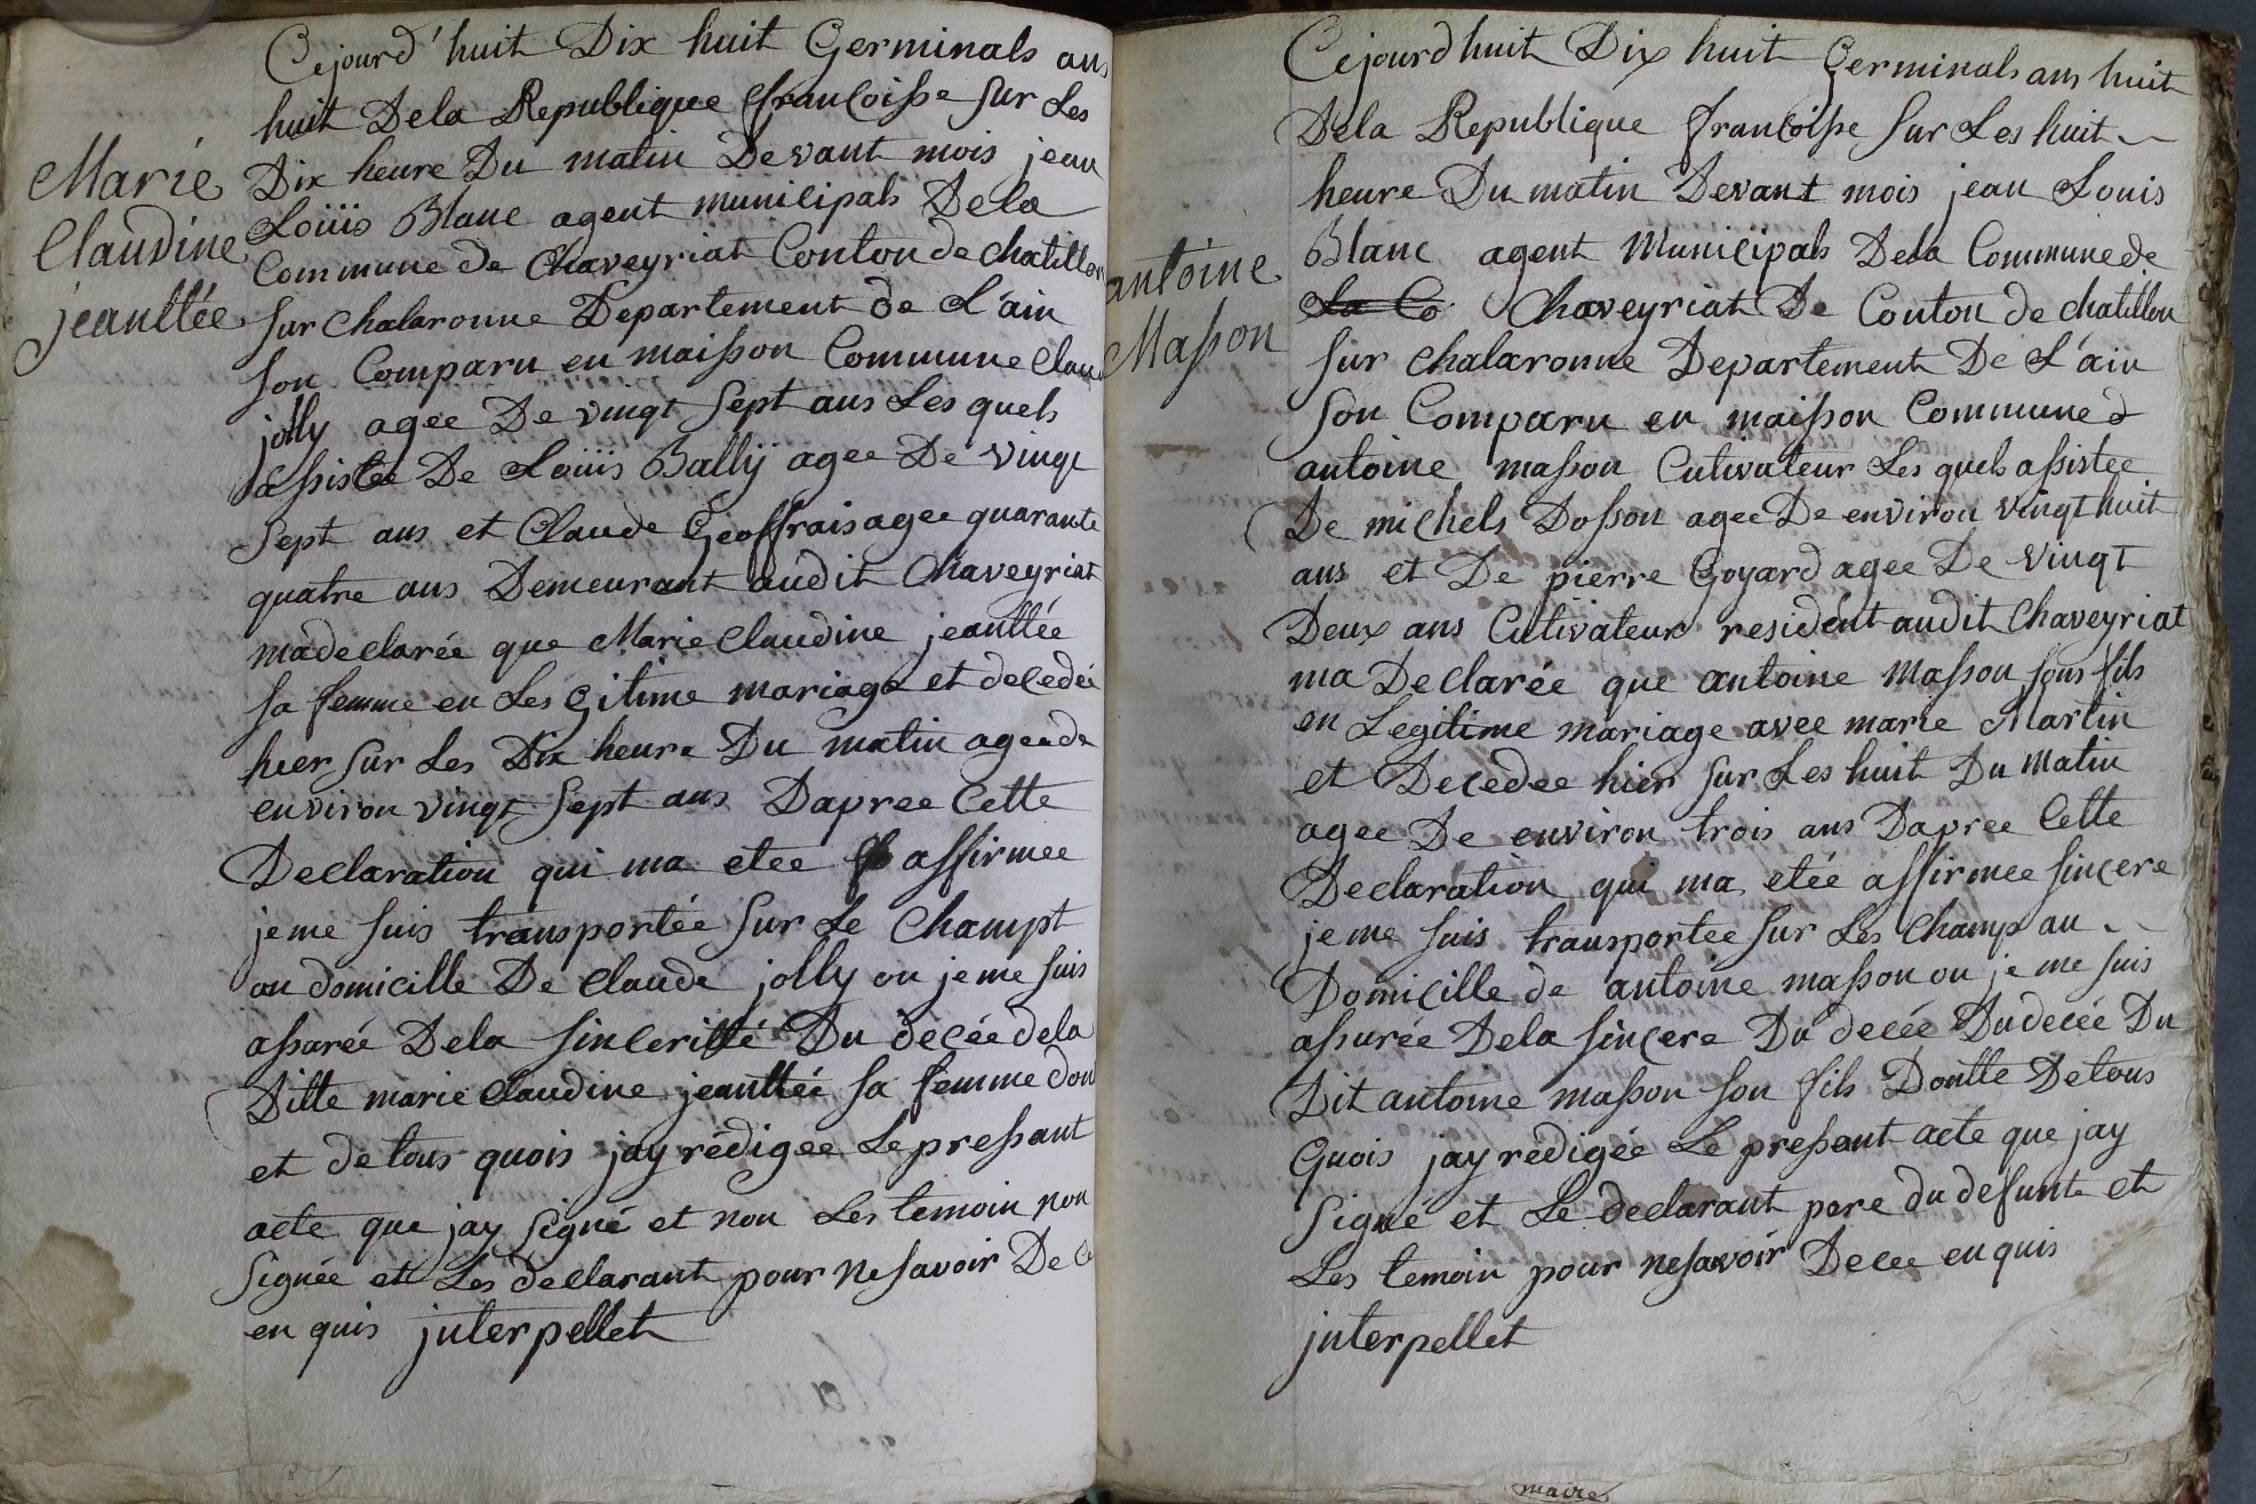 Marie
Claudine
jeanltée
Cejourd'huit Dix huit Germinals ans
huit Dela Republique francoisse sur Les
Dix heure Du matin Devant mois jean
Loüis Blanc agent municipals Dela
Commune de Chaveyriat Conton de chatillon
sur chalaronne Departement de L'ain
son Comparu en maisson Commune Claud
jolly agee De vingt sept ans Les quels
assistee De Loüis Ballÿ agee De vingt
sept ans et Claude Geoffrais agee quarante
quatre ans Demeurant audit Chaveyriat
ma declarée que Marie Claudine jeanltée
sa femme en Les Gitime mariage et decedée
hier sur Les Dix heure Du matin agee de
environ vingt sept ans Dapree Cette
Declaration qui ma etee affirmee
je me suis transportée sur Le Champt
au domicille De Claude jolly ou je me suis
assurée Dela sinceritté Du decée dela
Ditte marie Claudine jeanltée sa femme don
et de tous quois jay rédigee Le pressant
acte que jay signé et non Les temoin non
signée et Les declarant pour ne savoir De ce
en quis jnterpellet
antoine
Masson
Cejourdhuit Dix huit Germinals ans huit
Dela Republique francoisse sur Les huit
heure Du matin Devant mois jean Louis
Blanc agent Municipals Dela Commune de
La Co Chaveyriat De Conton de chatillon
sur chalaronne Departement De L'ain
son Comparu en maisson Commune d
antoine masson Cutivateur Les quels assistee
De michels Dosson agee De environ vingt huit
ans et De pierre Goyard agee De vingt
Deux ans Cutivateur residént audit Chaveyriat
ma Declarée que antoine Masson sons fils
en Legitime mariage avec marie Martin
et Decedee hier sur Les huit Du matin
agee De environ trois ans Dapree Cette
Declaration qui ma etée affirmee sincere
je me suis transportee sur Les Champ au
Domicille de antoine masson ou je me suis
assurée Dela sincere Du decée Du decée Du
Dit antoine masson son fils Dontte De tous
Quois jay rédigée Le pressent acte que jay
signé et Le declarant pere du defunte et
Les temoin pour ne savoir De cee en quis
jnterpellet
maire